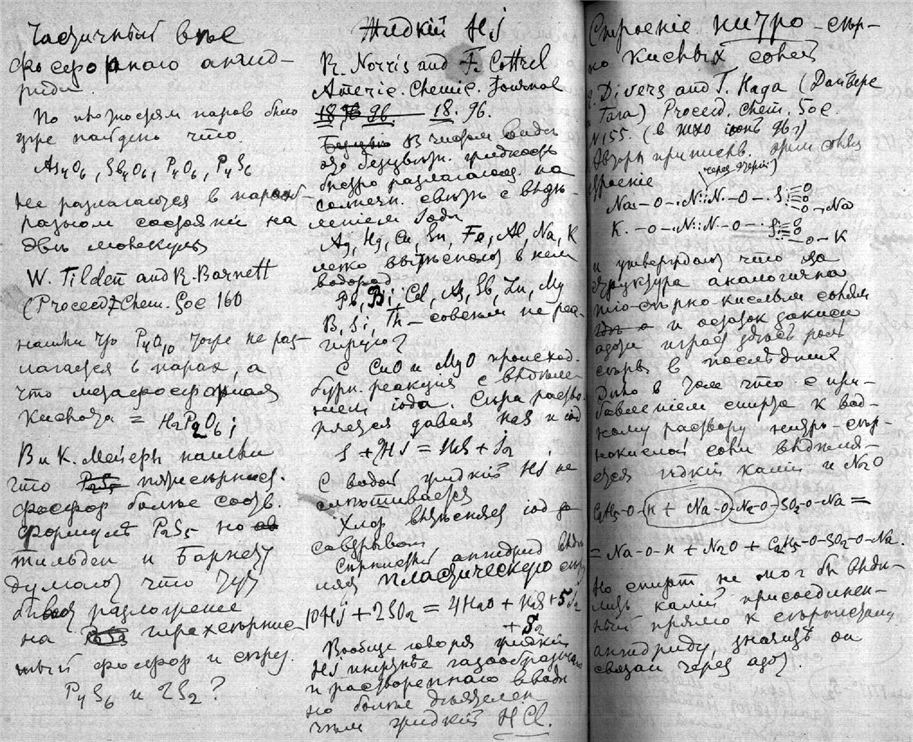 Частичный вѣс
фосфорнаго анги-
рида.
По плотностям паров было
уже найдено что
As4O6, Sb4O6, P4O6, P4S6
не разлагаются в парооб-
разном состоянии на
двѣ молекулы
W. Tilden and R. Barnett
(Proceed Chem. Soc 160
нашли что P4O10 тоже не раз-
лагается в парах, а
что метафосфорная
кислота = H2P2O6;
В и К. Мейеръ нашли
что P2S5 пятисѣрнист.
фосфор болѣе соотв.
формулѣ P2S5 но
Тильден и Барнетт
думают что тут
бывает разложение
на трехсѣрнис
тый фосфор и сѣру.
P4S6 и 2S2?
Жидкій HJ
R. Norris and F. Cottrel
Americ. Chemic. Journal
1896 96. 18. 96.
В чистом видѣ
это безцвѣтн. жидкость
быстро разлагается на
солнечн. свѣту с выдѣ-
лением Jода
Ag, Hg, Cu, Sn, Fe, Al, Na, K
легко вытѣсняют в нем
водород
Pb, Bi, Cd, As, Sb, Zn, Mg
B, Si, Th - совсем не реа-
гируют
С CuO и MgO происход.
бурн. реакция с выдѣле-
нием iода. Сѣра раство-
ряется давая H2S и iод
S + HJ = H2S + J2
С водой жидкій HJ не
смѣшивается
Хлор вытѣсняет iод
со взрывом
Сѣрнистый ангидрид выдѣ
ляя пластическую сѣру
10HJ + 2SO2 = 4H2O + H2S + 5J2
+ S2
Вообще говоря жидкій
HJ инертнѣе газообразнаго
и раствореннаго в водѣ
но болѣе дѣятелен
чѣм жидкій HCl.
Строеніе нитро-сѣр-
но кислых солей
Divers and T. Haga (Дайверс
Гага) Proceed. Chem. Soc.
N 155. (в ЖХО 96 г)
Авторы приписыв. этим солям
строение
Na - O - N:N. - O - S O O O - Na
K. - O - N:N - O - S O O O - K
и утверждают что эта
структура аналогична
тiо-сѣрно-кислым солям
и остаток закиси
азота играет здѣсь роль
сѣры в послѣдних
Дѣло в том что с при-
бавлением спирта к вод-
ному раствору нитро-сѣр-
нокислой соли выдѣля-
ется ѣдкій калий и N2O
C2H5-O-H + Na-O-N2-O-SO2-O-Na =
= Na-O-H + N2O + C2H5-O-SO2-O-Na.
Но спирт не мог бы выдѣ-
лить калий присоединен-
ный прямо к сѣрнистому
ангидриду, значит он
связан через азот.